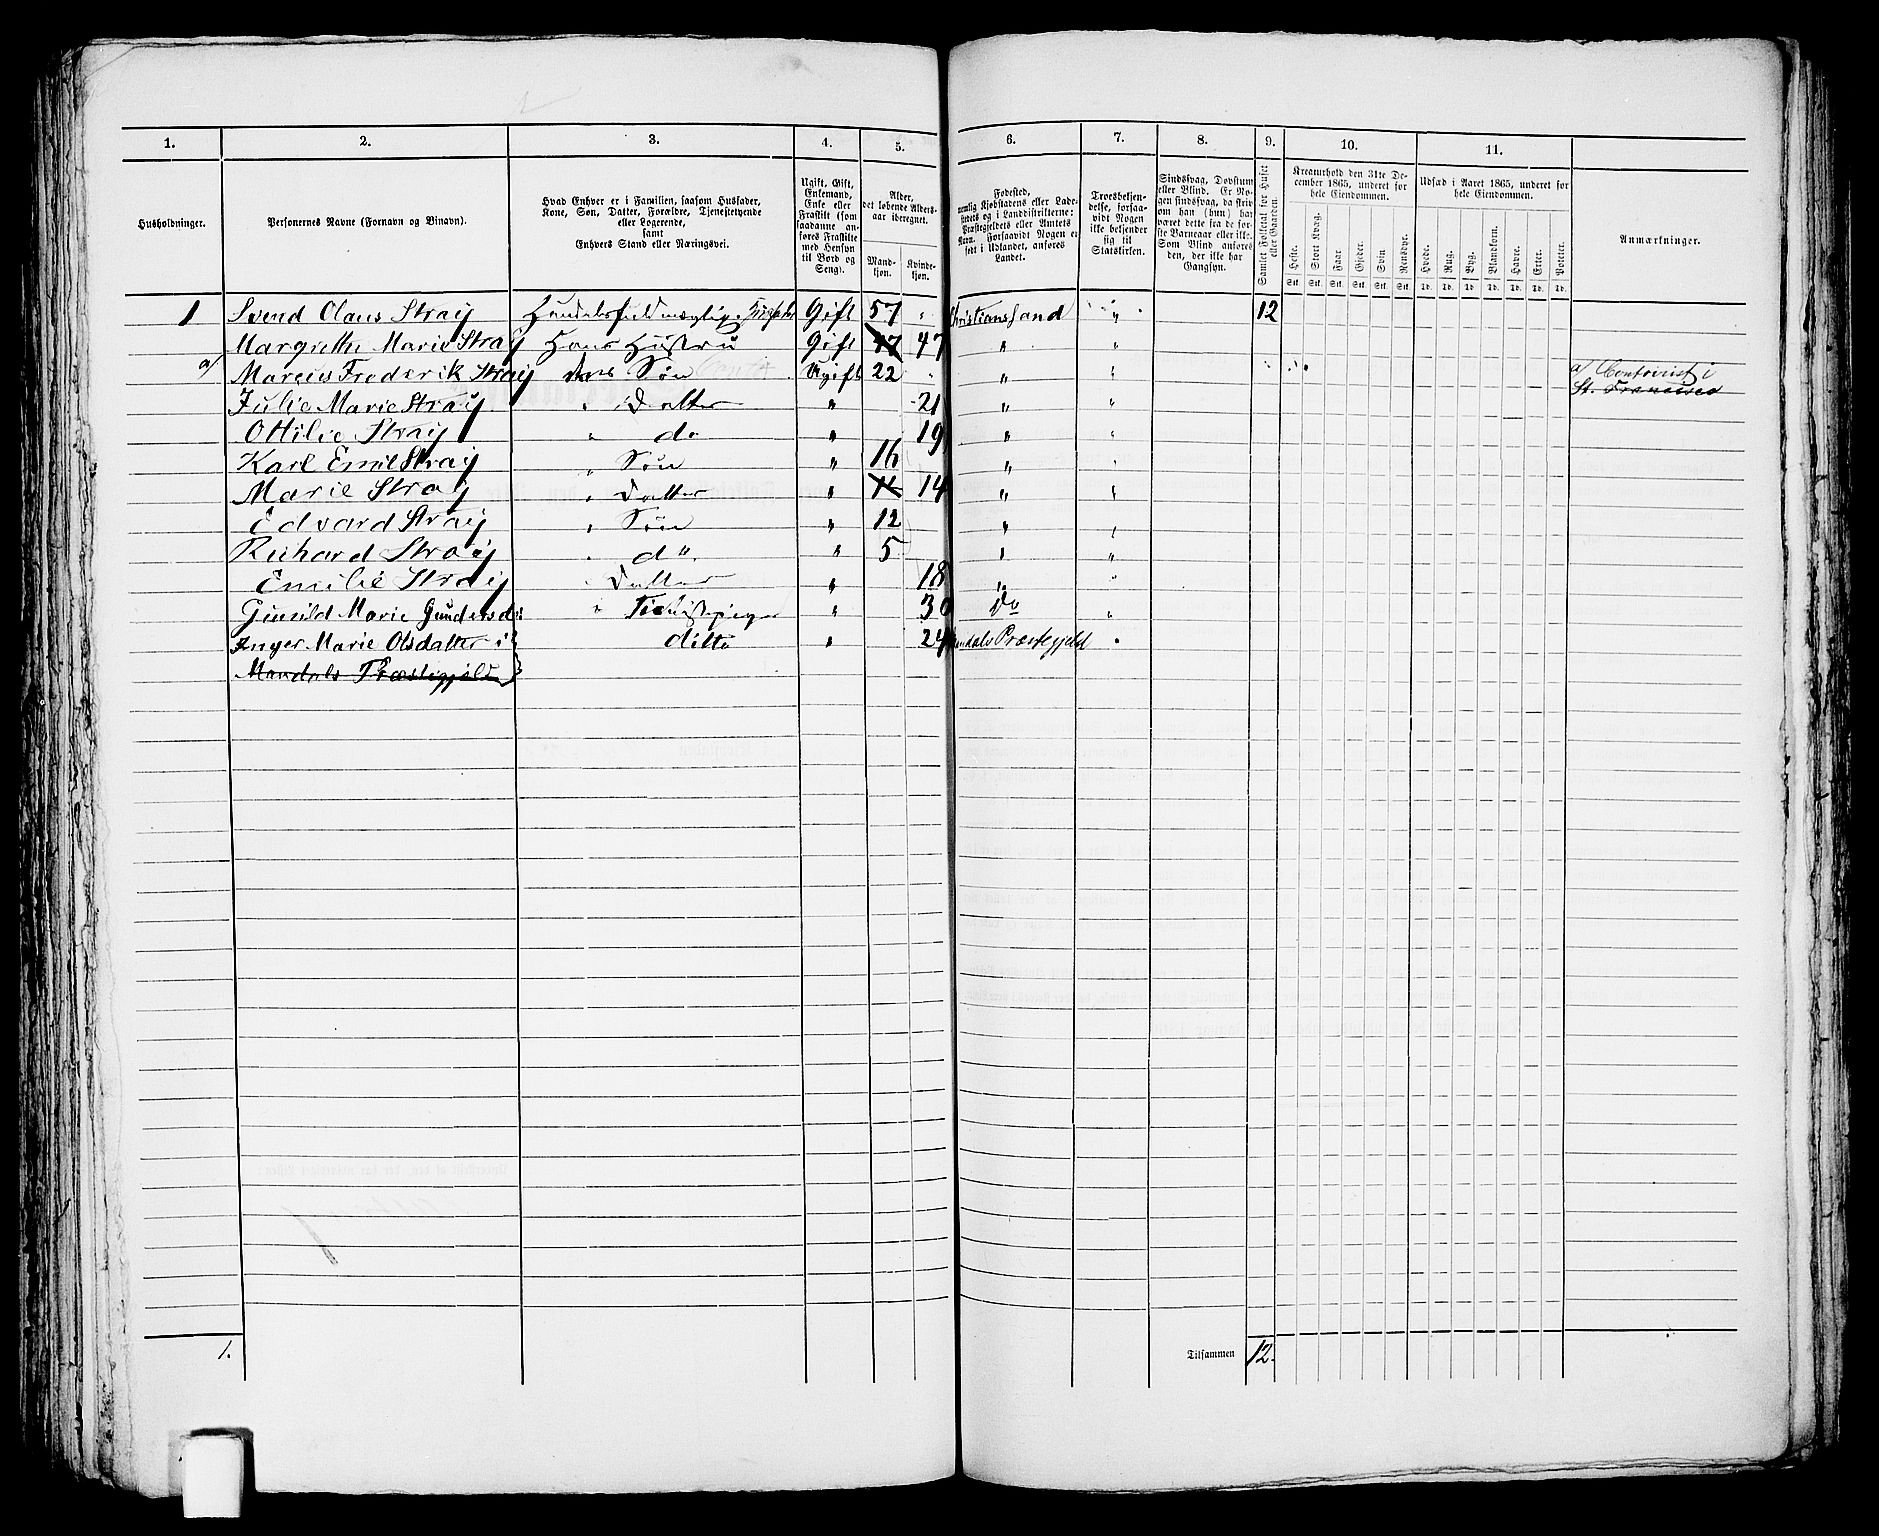 1. 2. 3. 4. 5. 6. 7. 8. 9. 10. 11.
Husholdninger.
Personernes Navne (Fornavn og Binavn).
Hvad Enhver er i Familien, saasom Husfader,
Kone, Søn, Datter, Forældre, Tjenestetyende
eller Logerende,
samt
Enhvers Stand eller Næringsvei.
Ugift, Gift,
Enkemand,
Enke eller
Fraskilt (som
saadanne an-
føres Fraskilte
med Hensyn
til Bord og
Seng).
Alder,
det løbende Alders-
aar iberegnet.
Mand-
kjøn.
Kvinde-
kjøn.
Fødested,
nemlig Kjøbstadens eller Lade-
stedets og i Landdistrikterne:
Præstegjeldets eller Amtets
Navn. Forsaavidt Nogen er
født i Udlandet, anføres
Landet.
Troesbekjen-
delse, forsaa-
vidt Nogen
ikke bekjender
sig til
Statskirken.
Sindssvag, Døvstum
eller Blind. Er No-
gen sindssvag, da skriv
om han (hun) har
været dette fra de før-
ste Barneaar eller ikke.
Som Blind anføres
den, der ikke har
Gangsyn.
Samlet Folketal for Huset
eller Gaarden.
Kreaturhold den 31te De-
cember 1865, underet for
hele Eiendommen.
Heste. Stort Kvæg. Faar Gjeder. Svin Rensdyr.
Stk. Stk. Stk. Stk. Stk. Stk.
Udsæd i Aaret 1865, underet for
hele Eiendommen.
Hvede. Rug. Byg. Blandkorn. Havre. Erter. Poteter.
Td. Td. Td. Td. Td. Td. Td.
Anmærkninger.
1 Svend Olaus Stray Gift 57 " Christianssand " 12
Margrethe Marie Stray Hans Hustru Gift 47 47 " "
a/ Marcus Frederik Stray deres Søn Ugift 22 " " a/ Contorist i
St. Francisco
Julie Marie Stray " Datter " 21 " "
Ottilie Stray " do " 19 " "
Karl Emil Stray " Søn " 16 " "
Marie Stray " Datter " 14 " "
Edvard Stray " Søn " 12 " "
Richard Stray " do " 5 " "
Emilie Stray " Datter " 18 " "
Gunild Marie " Tjenestepiger " 30 Do "
Inger Marie Olsdatter i ditto " 24 Mandals Præstegjeld "
Mandals Præstegjeld
1. Tilsammen 12.